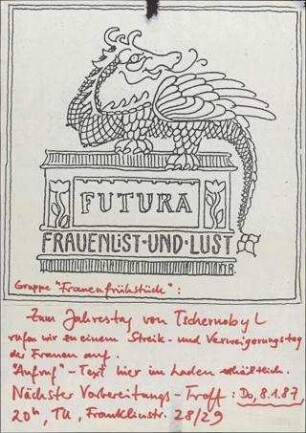 FUTURA
FRAUENLIST·UND·LUST
Gruppe "Frauenfrühstück":
Zum Jahrestag von Tschernobyl
rufen wir zu einem Streik- und Verweigerungstag
der Frauen auf.
"Aufruf"-Text hier im Laden erhältlich.
Nächster Vorbereitungs-Treff: Do, 8.1.87,
20h, TU, Franklinstr. 28/29